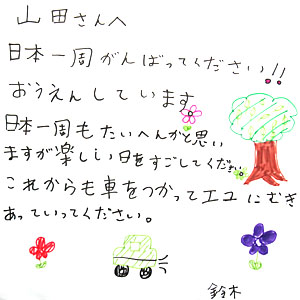 山田さんへ
日本一周がんばってください!!
おうえんしています
日本一周もたいへんかと思い
ますが楽しい日をすごしてください
これからも車をつかってエコにむき
あっていってください。
鈴木